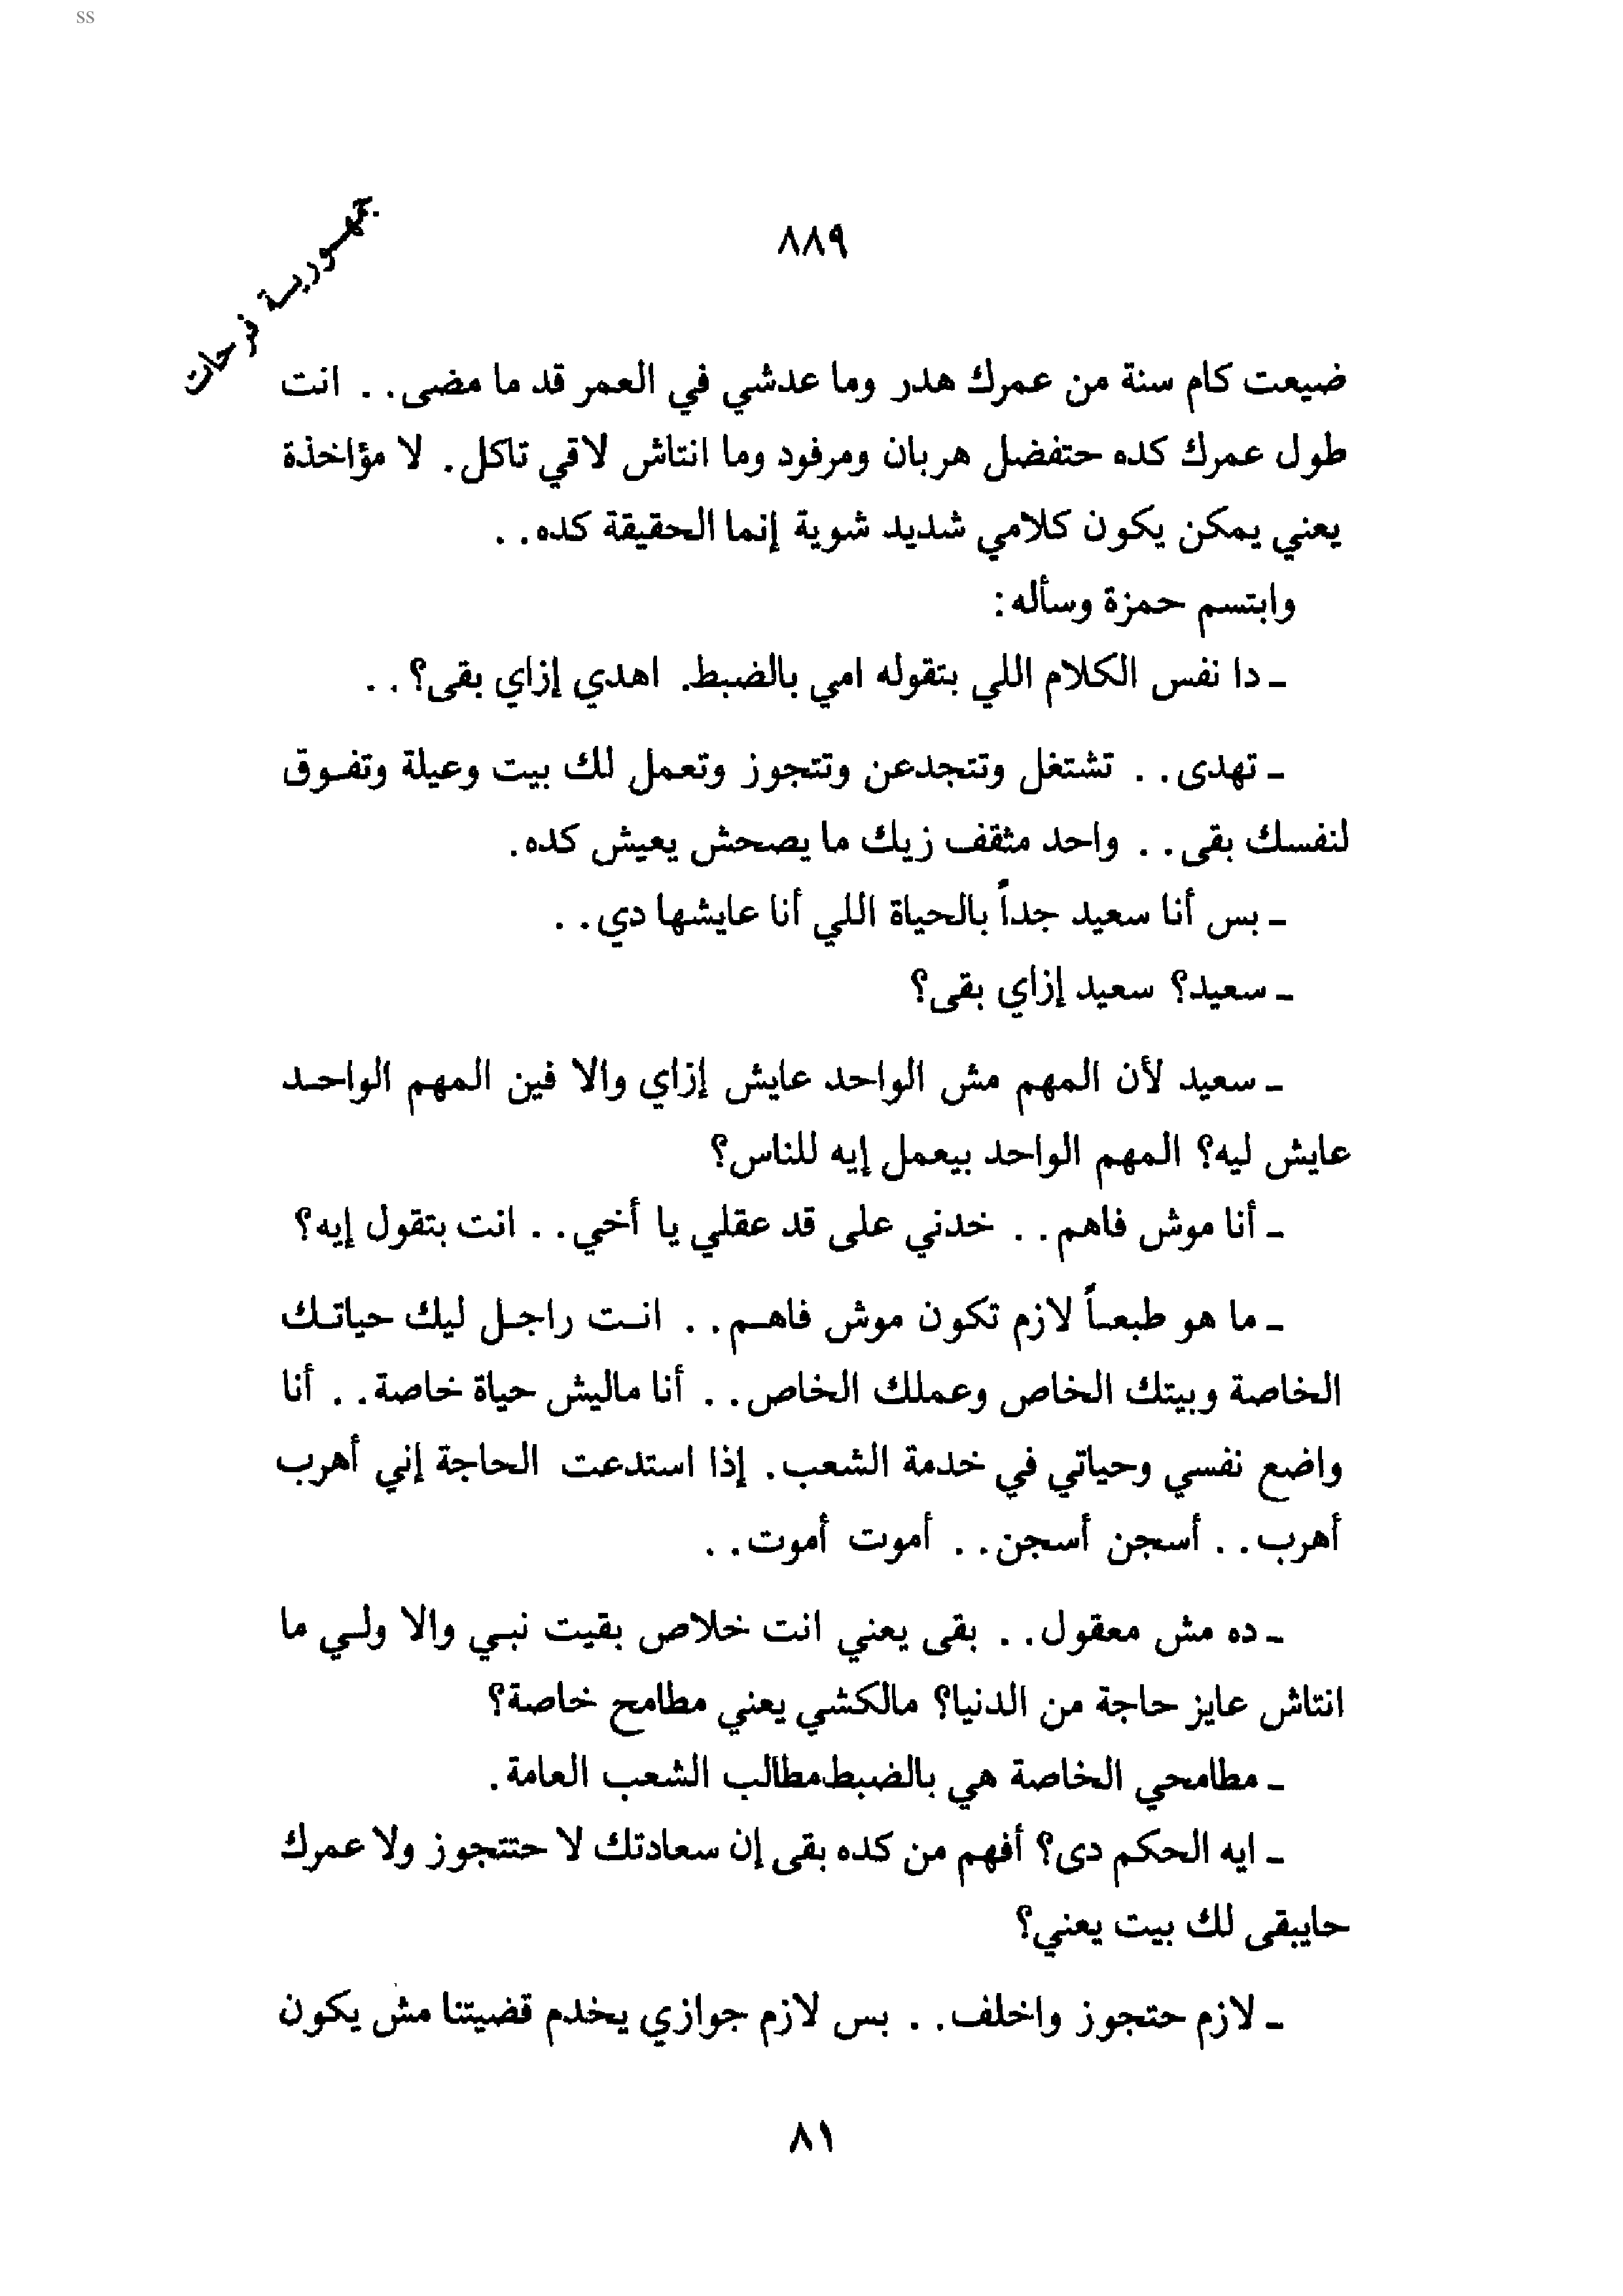 ss
٨٨٩
جمهورية فرحات
ضيعت كام سنة من عمرك هدر وما عدشي في العمر قد ما مضى.. انت
طول عمرك كده حتفضل هربان ومرفود وما انتاش لاقي تاكل. لا مؤاخذة
يعني يمكن يكون كلامي شديد شوية إنما الحقيقة كده..
وابتسم حمزة وسأله:
ـ دا نفس الكلام اللي بتقوله امي بالضبط. اهدي إزاي بقى؟..
ـ تهدى.. تشتغل وتتجدعن وتتجوز وتعمل لك بيت وعيلة وتفـوق
لنفسك بقى.. واحد مثقف زيك ما يصحش يعيش كده.
ـ بس أنا سعيد جداً بالحياة اللي أنا عايشها دي..
ـ سعيد؟ سعيد إزاي بقى؟
ـ سعيد لأن المهم مش الواحد عايش إزاي والا فين المهم الواحـد
عايش ليه؟ المهم الواحد بيعمل إيه للناس؟
ـ أنا موش فاهم.. خدني على قد عقلي يا أخي.. انت بتقول إيه؟
ـ ما هو طبعـاً لازم تكون موش فاهـم.. انـت راجـل ليك حياتـك
الخاصة وبيتك الخاص وعملك الخاص.. أنا ماليش حياة خاصة.. أنا
واضع نفسي وحياتي في خدمة الشعب. إذا استدعت الحاجة إني أهرب
أهرب.. أسجن أسجن.. أموت أموت..
ـ ده مش معقول.. بقى يعني انت خلاص بقيت نبـي والا ولـي ما
انتاش عايز حاجة من الدنيا؟ مالكشي يعني مطامح خاصة؟
ـ مطامحي الخاصة هي بالضبط مطالب الشعب العامة.
ـ ايه الحكم دى؟ أفهم من كده بقى إن سعادتك لا حتتجوز ولا عمرك
حايبقى لك بيت يعني؟
ـ لازم حتجوز واخلف.. بس لازم جوازي يخدم قضيتنا مش يكون
٨١